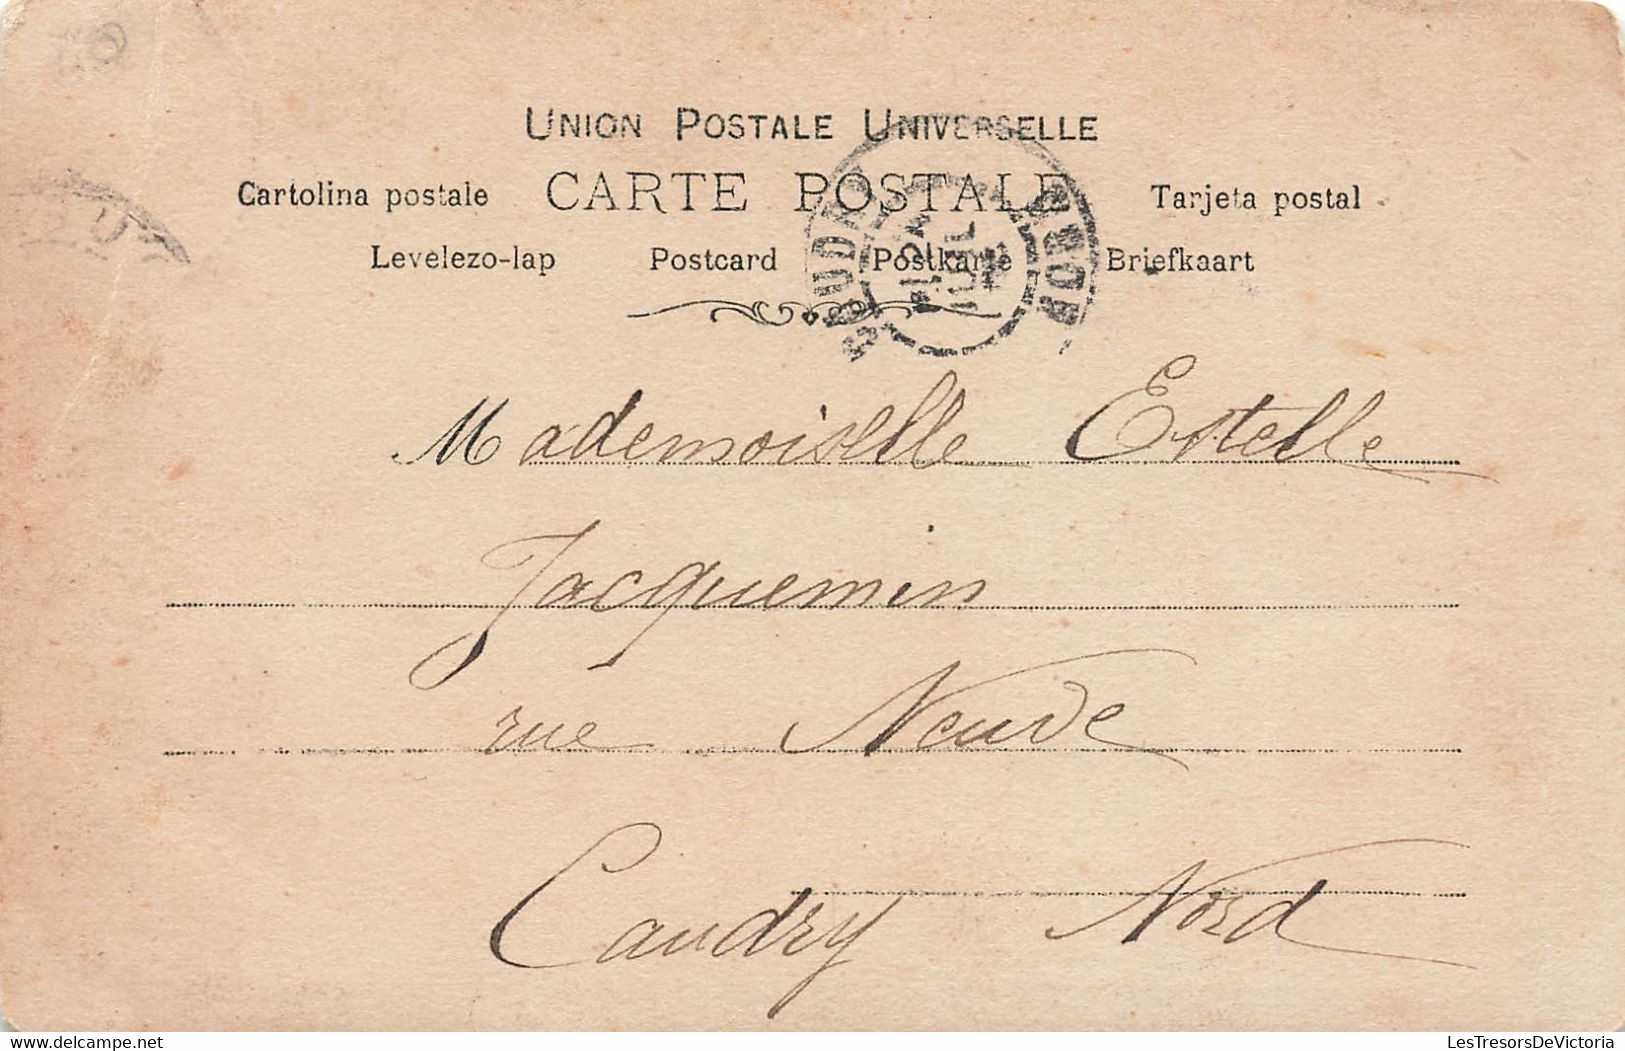 UNION POSTALE UNIVERSELLE
Cartolina postale CARTE POSTALE Tarjeta postal
Levelezo-lap Postcard Postkarte Briefkaart
CAUDRY NORD
Mademoiselle Estelle
Jacquemin
rue Neuve
Caudry Nord
LesTresorsDeVictoria
delcampe.net